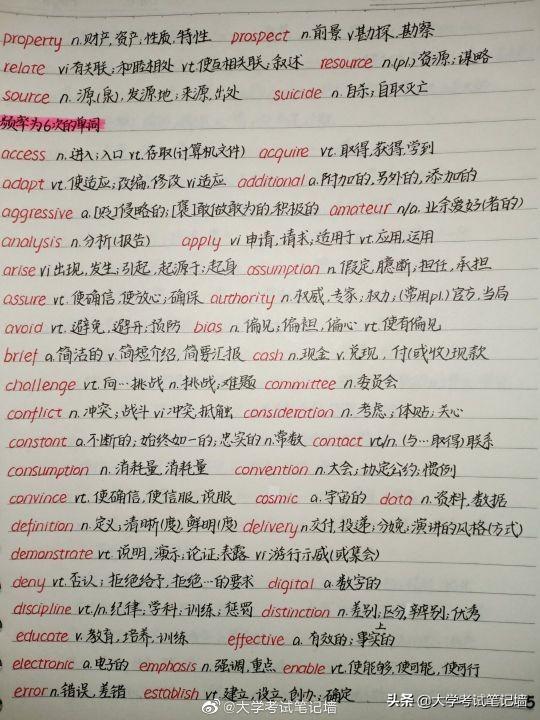 property n.财产,资产,性质,特性 prospect n.前景 v.勘探,勘察
relate vi有关联;和睦相处 vt.使互相关联;叙述 resource n.(pl.)资源;谋略
source n. 源(泉),发源地;来源,出处 suicide n.自杀;自取灭亡
频率为6次的单词
access n.进入;入口 vt.存取(计算机文件) acquire vt.取得,获得,学到
adapt vt.使适应;改编,修改 vi适应 additional a.附加的,另外的,添加的
aggressive a.[贬]侵略的;[褒]敢做敢为的,积极的 amateur n/a.业余爱好(者的)
analysis n.分析(报告) apply vi申请,请求;适用于 vt.应用,运用
arise vi出现,发生;引起,起源于;起身 assumption n.假定,臆断;担任,承担
assure vt.使确信,使放心;确保 authority n.权威,专家;权力;(常用pl.)官方,当局
avoid vt.避免,避开;预防 bias n.偏见;偏袒,偏心 vt.使有偏见
brief a.简洁的 v.简短介绍,简要汇报 cash n.现金 v.兑现,付(或收)现款
challenge vt.向…挑战 n.挑战;难题 committee n.委员会
conflict n.冲突;战斗 vi冲突,抵触 consideration n.考虑;体贴;关心
constant a.不断的;始终如一的;忠实的 n.常数 contact vt/n.(与…取得)联系
consumption n.消耗量,消耗量 convention n.大会;协定公约;惯例
convince vt.使确信,使信服,说服 cosmic a.宇宙的 data n.资料,数据
definition n.定义;清晰(度),鲜明(度) delivery n.交付,投递;分娩;演讲的风格(方式)
demonstrate vt.说明,演示;论证;表露 vi游行示威(或集会)
deny vt.否认;拒绝给予,拒绝…的要求 digital a.数字的
discipline vt./n.纪律;学科;训练;惩罚 distinction n.差别;区分,辨别;优秀
educate v.教育,培养,训练 effective a.有效的;事实上的
electronic a.电子的 emphasis n.强调,重点 enable vt.使能够,使可能,使可行
error n.错误,差错 establish vt.建立,设立,创办;确定
5
@大学考试笔记墙
头条 @大学考试笔记墙